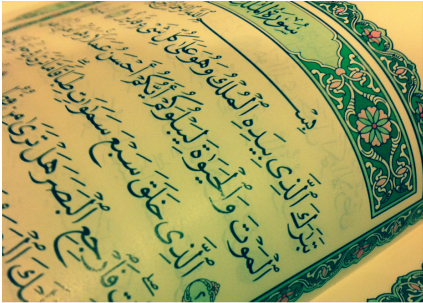 سُورَةُ المُلْكِ
تَبَٰرَكَ ٱلَّذِى بِيَدِهِ ٱلْمُلْكُ وَهُوَ عَلَىٰ كُلِّ
ٱلْمَوْتَ وَٱلْحَيَوٰةَ لِيَبْلُوَكُمْ أَيُّكُمْ أَحْسَنُ عَمَلًا
٢ ٱلَّذِى خَلَقَ سَبْعَ سَمَٰوَٰتٍ طِبَاقًا
فَٱرْجِعِ ٱلْبَصَرَ هَلْ تَرَىٰ مِن